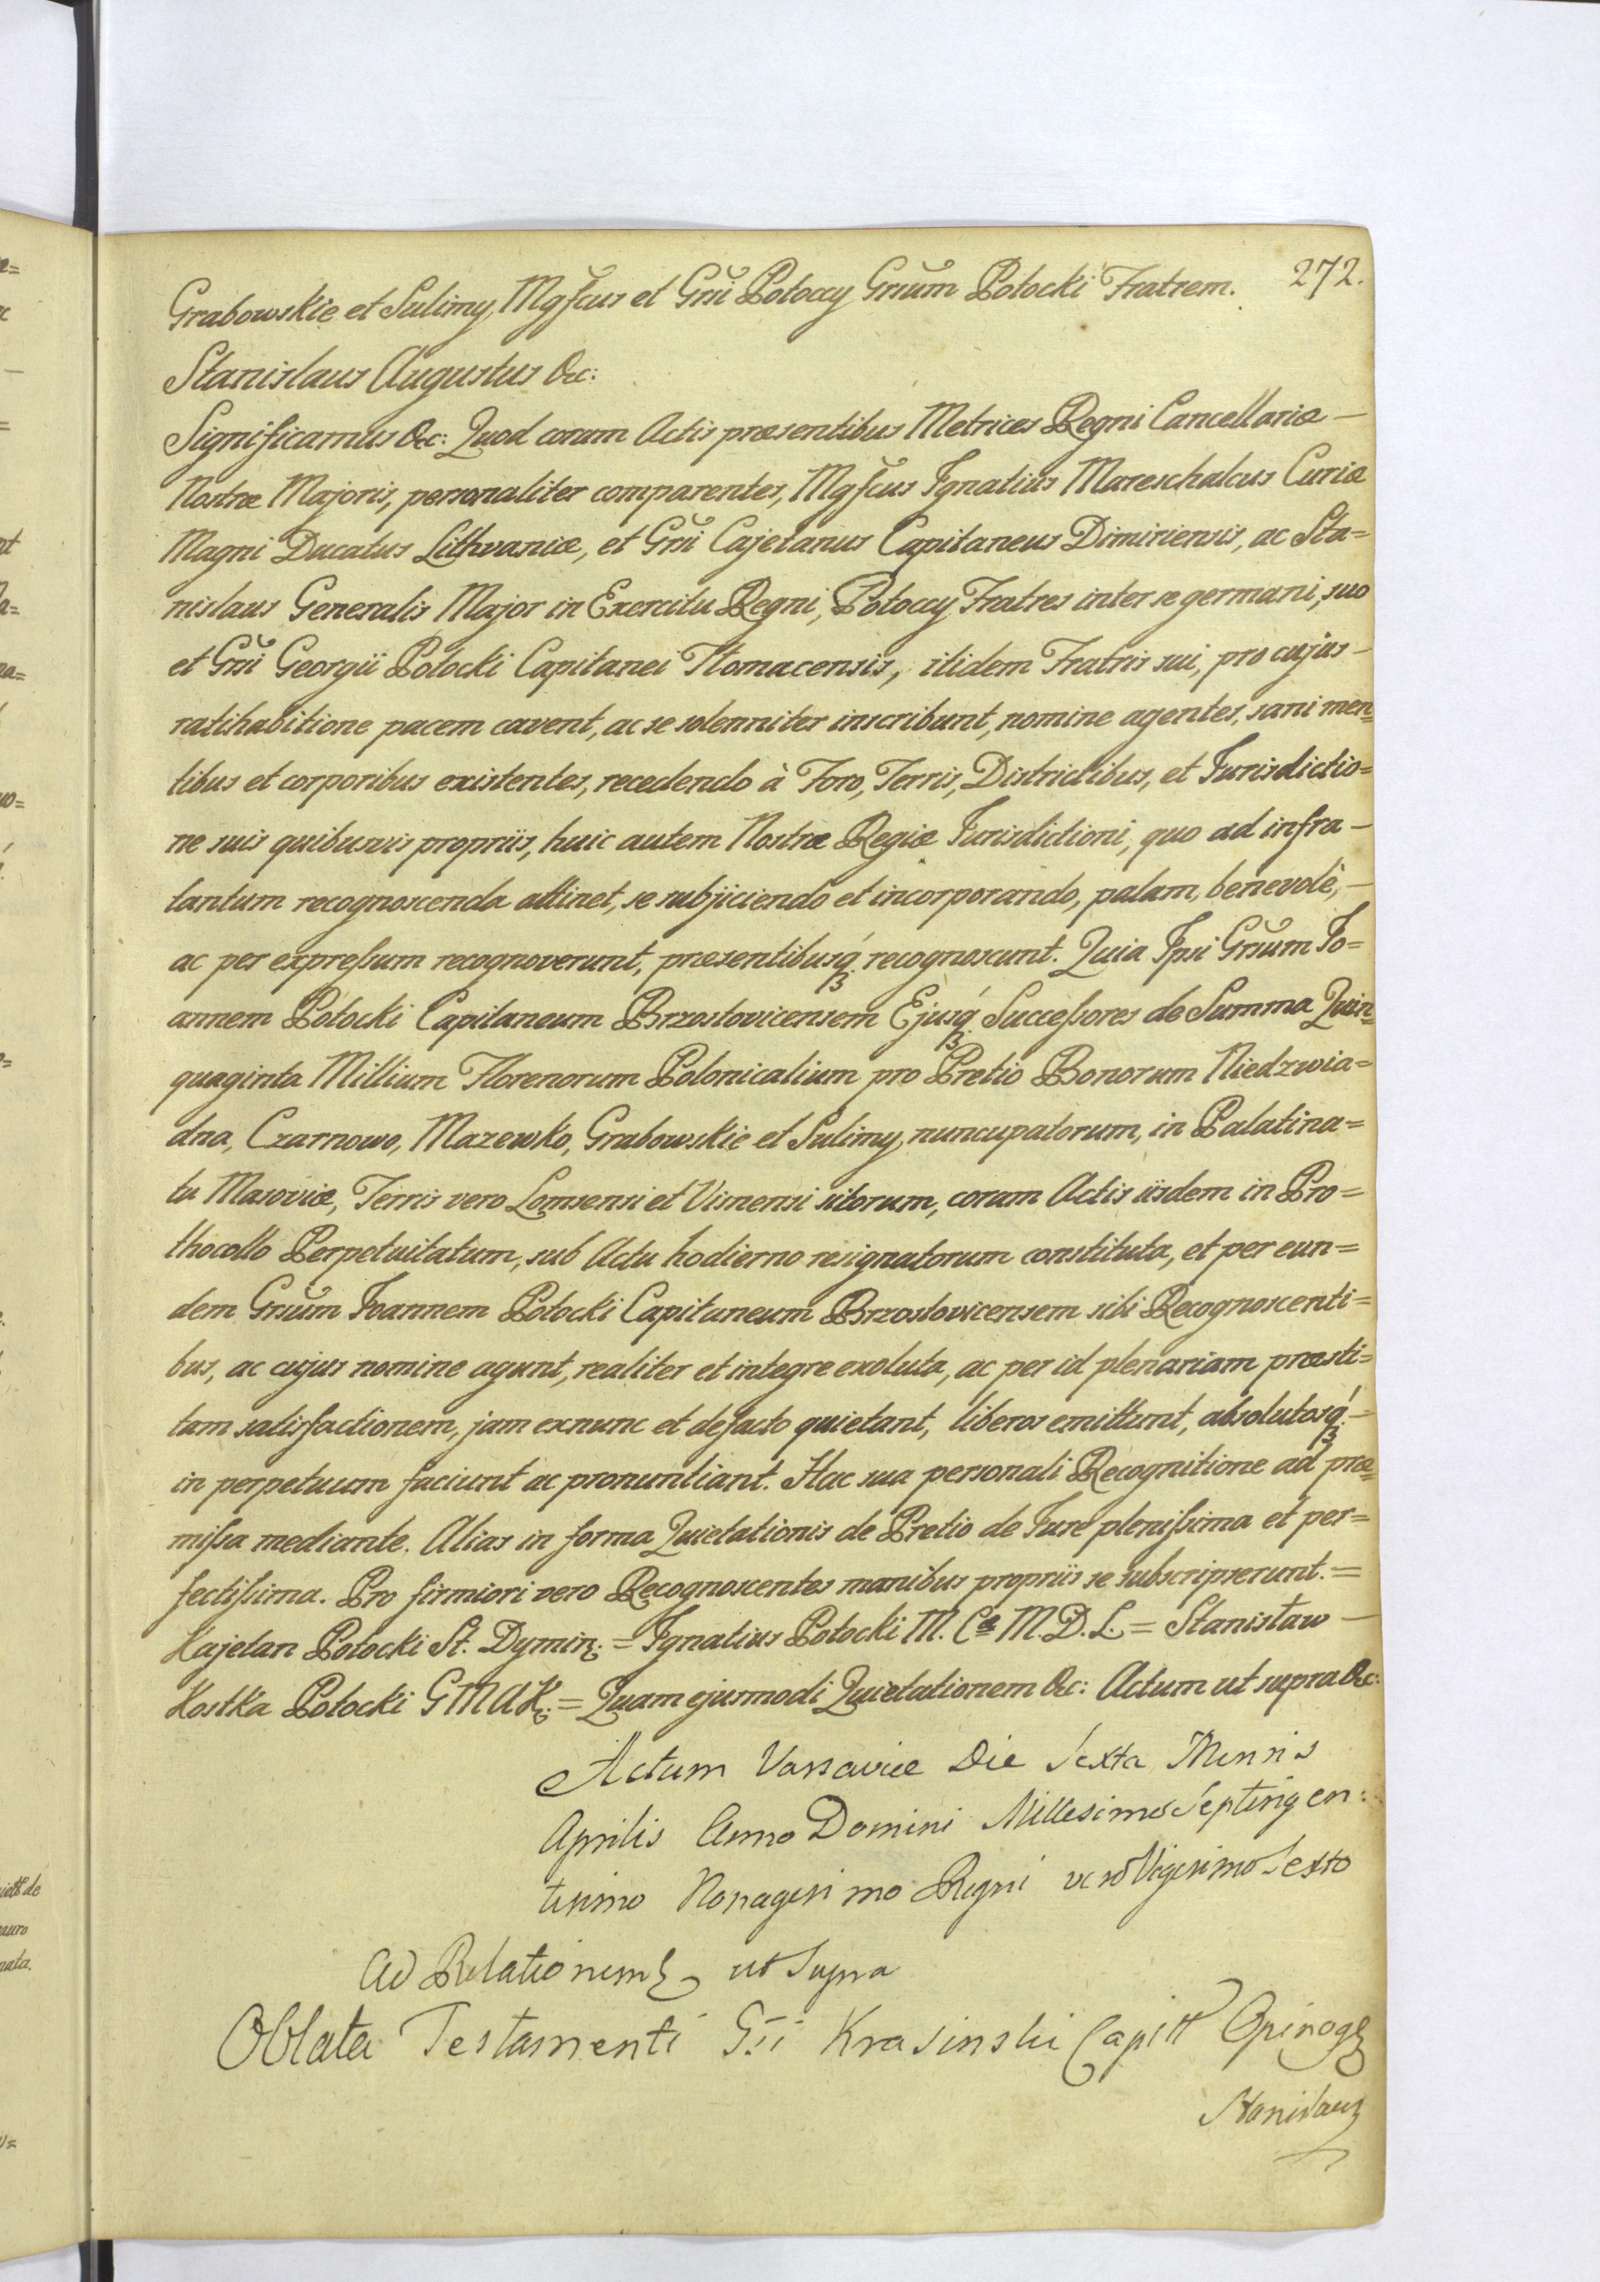 272.
Grabowskie et Sulimy, Mgfcus et Grsi Potoccy Grsum Potocki Fratrem.
Stanislaus Augustus &c:
Significamus &c: Quod coram Actis præsentibus Metrices Regni Cancellariæ —
Nostræ Majoris, personaliter comparentes, Mgfcus Ignatius Mareschalcus Curiæ
Magni Ducatus Lithvaniæ, et Grsi Cajetanus Capitaneus Dimiriensis, ac Sta=
nislaus Generalis Major in Exercitu Regni, Potoccy Fratres inter se germani, suo
et Grsi Georgii Potocki Capitanei Tłomacensis, itidem Fratris sui, pro cujus —
ratihabitione pacem cavent, ac se solenniter inscribunt, nomine agentes, sani men=
tibus et corporibus existentes, recedendo à Foro, Terris, Districtibus, et Iurisdictio=
ne suis quibusvis propriis, huic autem Nostræ Regiæ Iurisdictioni, quo ad infra —
tantum recognoscenda attinet, se subjiciendo et incorporando, palam, benevolè, —
ac per expressum recognoverunt, præsentibusq́ recognoscunt. Quia Ipsi Grsum Io=
annem Potocki Capitaneum Brzostovicensem Ejusq́ Successores de Summa Quin=
quaginta Millium Florenorum Polonicalium pro Pretio Bonorum Niedzwia=
dna, Czarnowo, Mazewko, Grabowskie et Sulimy, nuncupatorum, in Palatina=
tu Masoviæ, Terris vero Lomsensi et Visnensi sitorum, coram Actis iisdem in Pro=
thocollo Perpetuitatum, sub Actu hodierno resignatorum constituta, et per eun=
dem Grsum Ioannem Potocki Capitaneum Brzostovicensem sibi Recognoscenti=
bus, ac cujus nomine agunt, realiter et integre exoluta, ac per id plenariam præsti=
tam satisfactionem, jam exnunc et defacto quietant, liberos emittunt, absolutosq́ —
in perpetuum faciunt ac pronuntiant. Hac sua personali Recognitione ad præ=
missa mediante. Alias in forma Quietationis de Pretio de Iure plenissima et per=
fectissima. Pro firmiori vero Recognoscentes manibus propriis se subscripserunt. =
Kajetan Potocki St. Dymir: = Ignatius Potocki M. Ca M. D. L. = Stanisław —
Kostka Potocki GMAK: = Quam ejusmodi Quietationem &c: Actum ut supra &c:
Actum Varsaviæ Die Sexta Mensis
Aprilis Anno Domini Millesimo Septingen:
tesimo Nonagesimo Regni vero Vigesimo Sexto
Ad Relationem ut Supra
Oblata Testamenti Gsi Krasinski Capitt Opinog
Stanislaus
iett de
auro
nata.